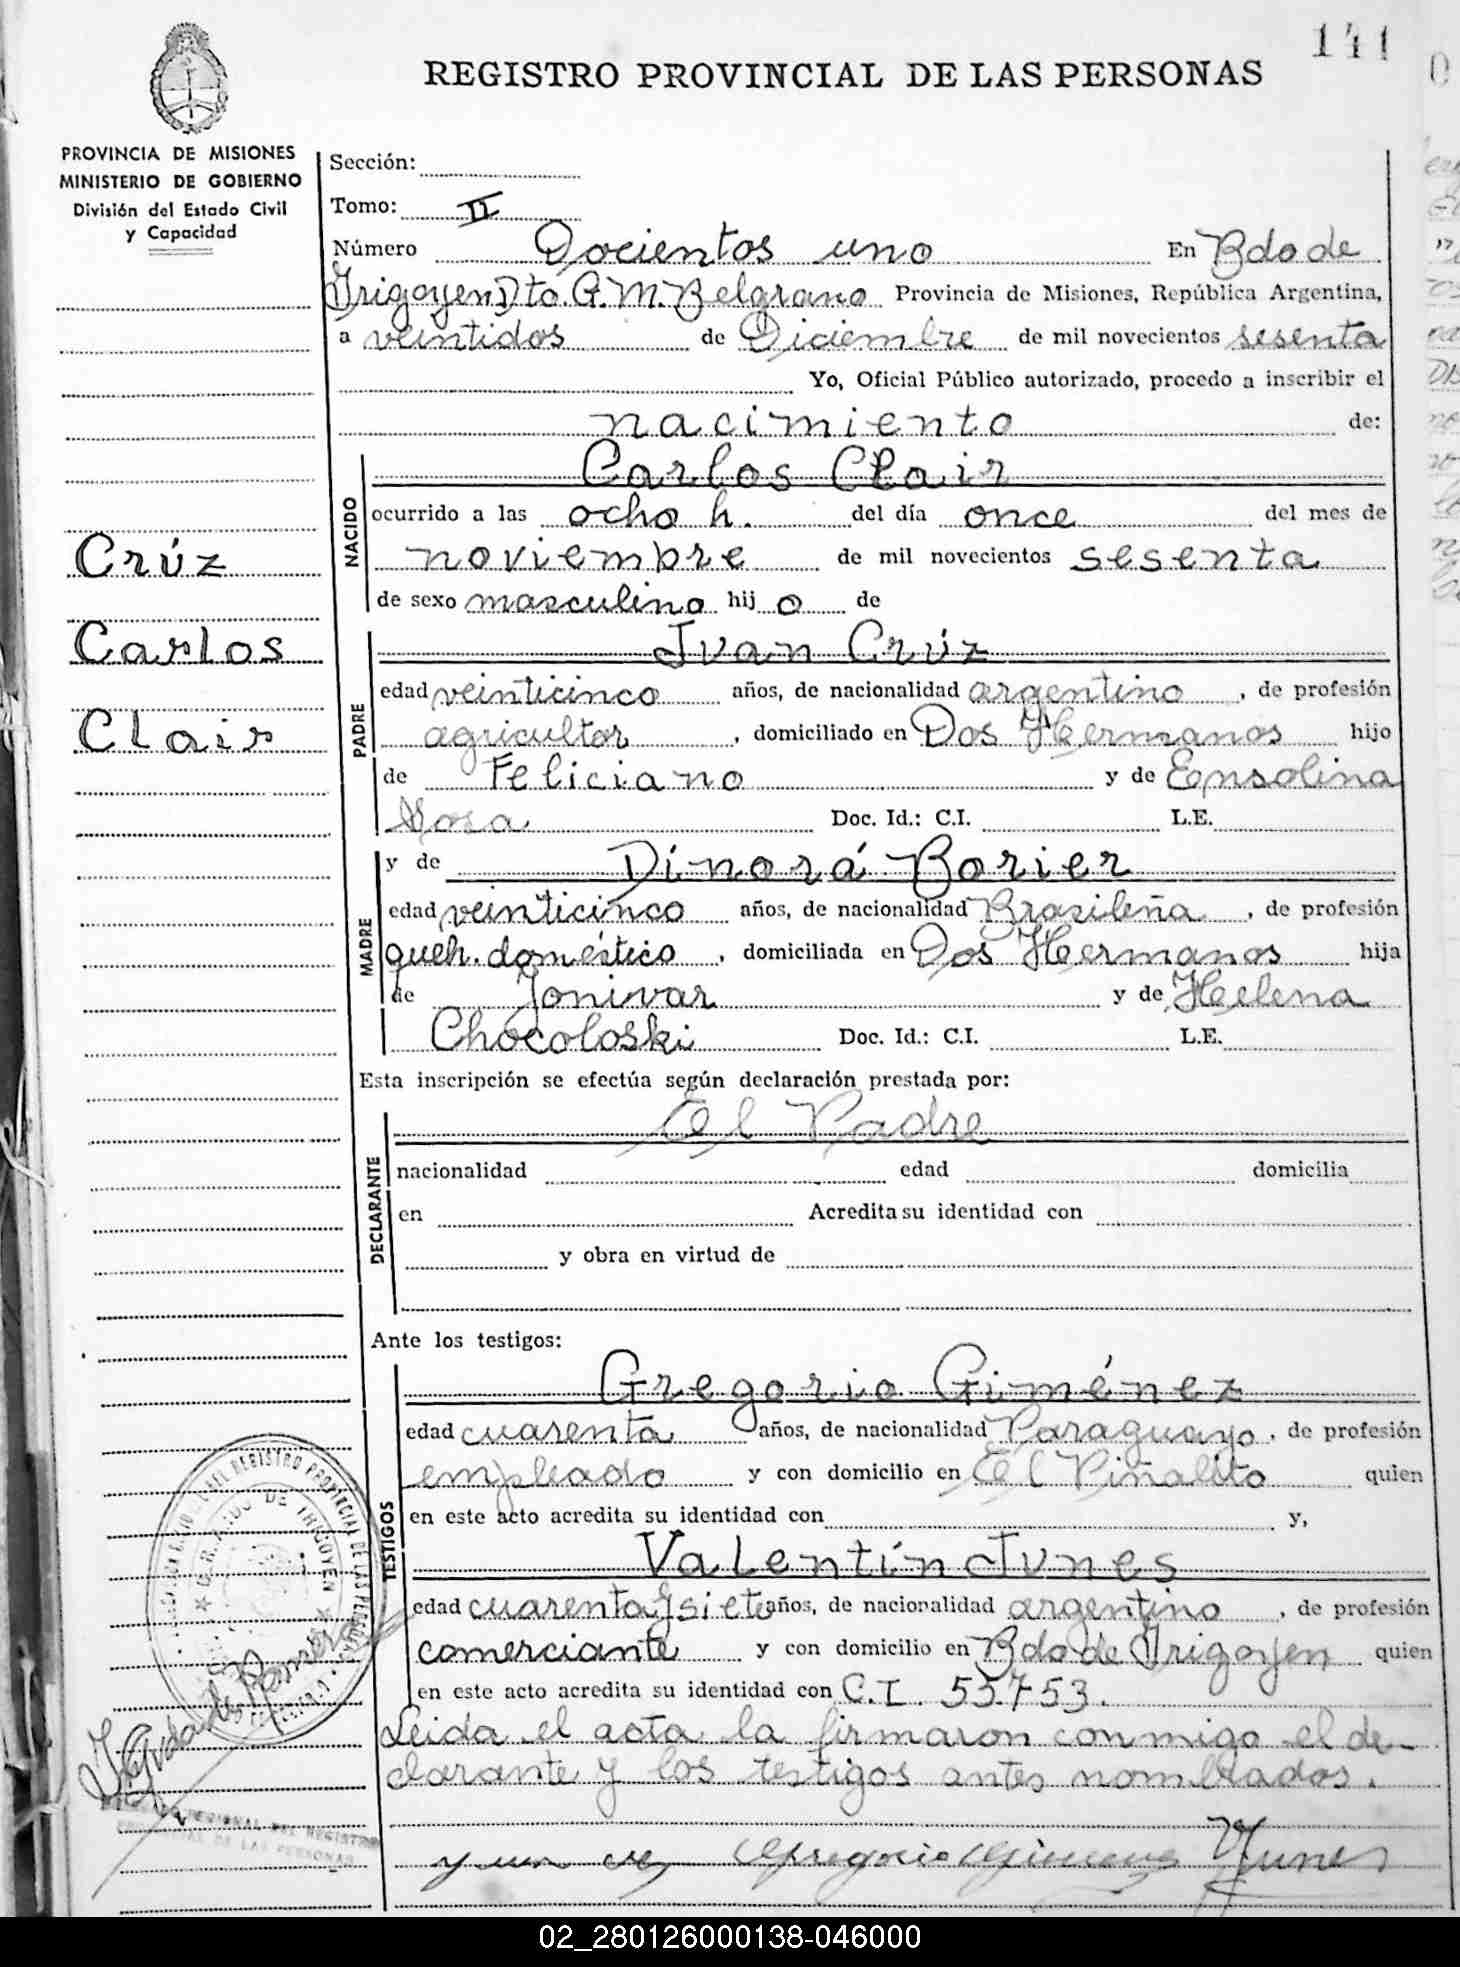 141
REGISTRO PROVINCIAL DE LAS PERSONAS
PROVINCIA DE MISIONES
MINISTERIO DE GOBIERNO
División del Estado Civil
y Capacidad
Crúz
Carlos
Clair
Sección:
Tomo: II
Número Docientos uno En Bdo de
Irigoyen Dto. G. M. Belgrano Provincia de Misiones, República Argentina,
a veintidos de Diciembre de mil novecientos sesenta
Yo, Oficial Público autorizado, procedo a inscribir el
nacimiento de:
NACIDO
Carlos Clair
ocurrido a las ocho h. del día once del mes de
noviembre de mil novecientos sesenta
de sexo masculino hij o de
PADRE
Juan Crúz
edad veinticinco años, de nacionalidad argentino, de profesión
agricultor, domiciliado en Dos Hermanos hijo
de Feliciano y de Ensolina
Sosa Doc. Id.: C.I. L.E.
MADRE
y de Dínorá Borier
edad veinticinco años, de nacionalidad Brasileña, de profesión
queh. doméstico, domiciliada en Dos Hermanos hija
de Jonivar y de Helena
Chocoloski Doc. Id.: C.I. L.E.
Esta inscripción se efectúa según declaración prestada por:
DECLARANTE
El Padre
nacionalidad edad domicilia
en Acredita su identidad con
y obra en virtud de
Ante los testigos:
TESTIGOS
Gregorio Giménez
edad cuarenta años, de nacionalidad Paraguayo, de profesión
empleado y con domicilio en El Piñalito quien
en este acto acredita su identidad con y,
Valentín Junes
edad cuarenta y siete años, de nacionalidad argentino, de profesión
comerciante y con domicilio en Bdo de Irigoyen quien
en este acto acredita su identidad con C.I. 55.753.
Leida el acta la firmaron conmigo el de-
clarante y los testigos antes nombrados.
Gregorio Gimenez
02_280126000138-046000